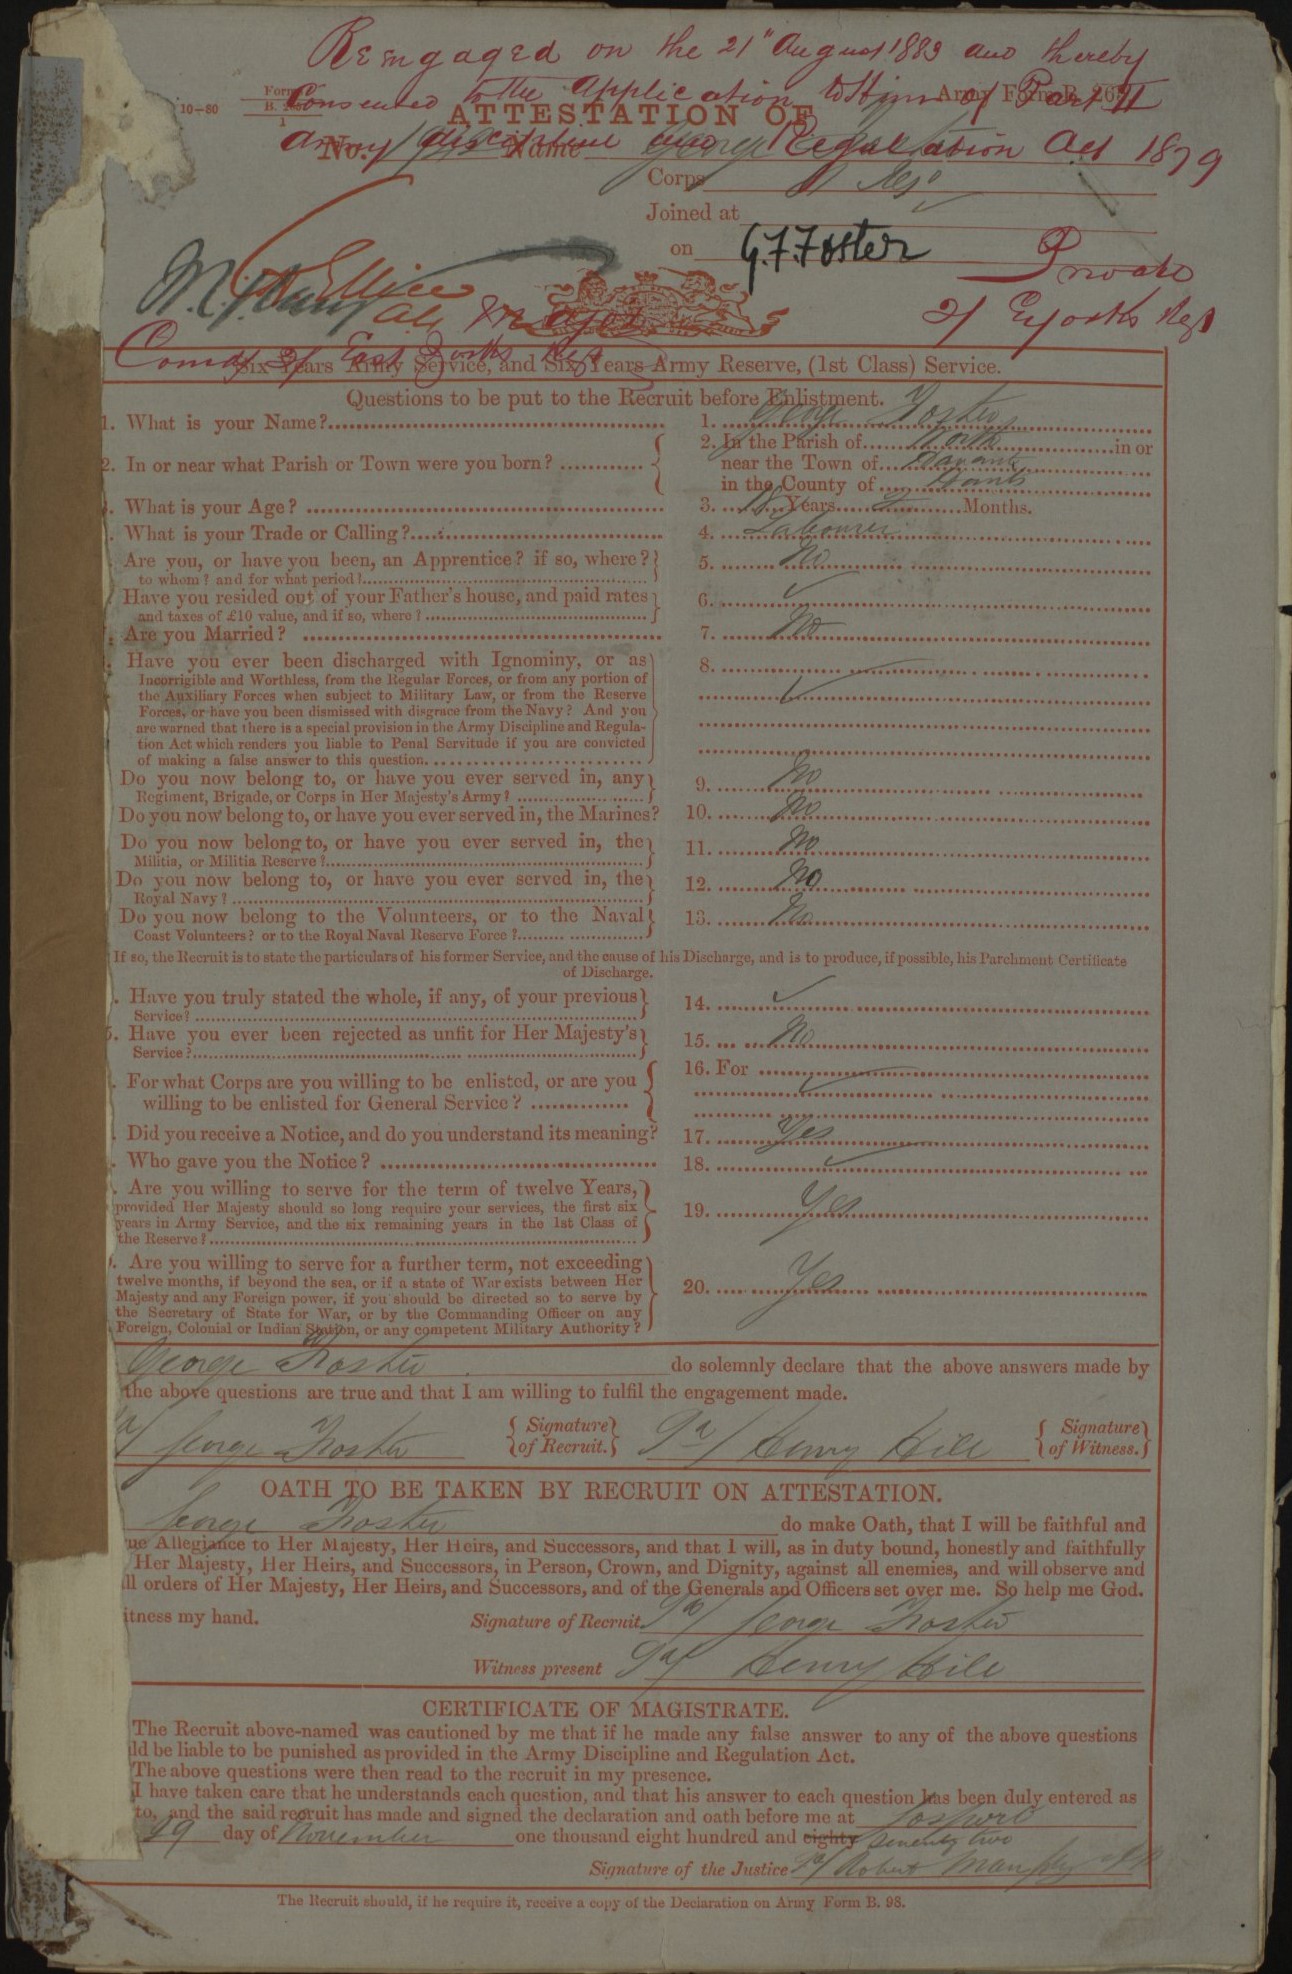 Reengaged on the 21" August 1883 and thereby
Consented to the Application to Him of Part II
Army discipline and Regulation Act 1879
10-80
Form
B.
1
Army Form B. 26
ATTESTATION OF
No. Name George
Corps
Joined at
on
G.F. Foster
Private
2/ E yorks Regt
Major
Comdg 2/ East Yorks Regt
Six Years Army Service, and Six Years Army Reserve, (1st Class) Service.
Questions to be put to the Recruit before Enlistment.
1. What is your Name? 1. George Foster
2. In or near what Parish or Town were you born? 2. In the Parish of North in or
near the Town of Havant
in the County of Hants
What is your Age? 3. 18 Years 2 Months.
What is your Trade or Calling? 4. Labourer
Are you, or have you been, an Apprentice? if so, where? 5. No
to whom? and for what period?
Have you resided out of your Father's house, and paid rates 6. ✓
and taxes of £10 value, and if so, where?
Are you Married? 7. No
Have you ever been discharged with Ignominy, or as 8.
Incorrigible and Worthless, from the Regular Forces, or from any portion of
the Auxiliary Forces when subject to Military Law, or from the Reserve ✓
Forces, or have you been dismissed with disgrace from the Navy? And you
are warned that there is a special provision in the Army Discipline and Regula-
tion Act which renders you liable to Penal Servitude if you are convicted
of making a false answer to this question.
Do you now belong to, or have you ever served in, any 9. No
Regiment, Brigade, or Corps in Her Majesty's Army?
Do you now belong to, or have you ever served in, the Marines? 10. No
Do you now belong to, or have you ever served in, the 11. No
Militia, or Militia Reserve?
Do you now belong to, or have you ever served in, the 12. No
Royal Navy?
Do you now belong to the Volunteers, or to the Naval 13. No
Coast Volunteers? or to the Royal Naval Reserve Force?
If so, the Recruit is to state the particulars of his former Service, and the cause of his Discharge, and is to produce, if possible, his Parchment Certificate
of Discharge.
Have you truly stated the whole, if any, of your previous 14. ✓
Service?
Have you ever been rejected as unfit for Her Majesty's 15. No
Service?
For what Corps are you willing to be enlisted, or are you 16. For
willing to be enlisted for General Service? ✓
Did you receive a Notice, and do you understand its meaning? 17. Yes
Who gave you the Notice? 18. ✓
Are you willing to serve for the term of twelve Years,
provided Her Majesty should so long require your services, the first six 19. Yes
years in Army Service, and the six remaining years in the 1st Class of
the Reserve?
Are you willing to serve for a further term, not exceeding
twelve months, if beyond the sea, or if a state of War exists between Her 20. Yes
Majesty and any Foreign power, if you should be directed so to serve by
the Secretary of State for War, or by the Commanding Officer on any
Foreign, Colonial or Indian Station, or any competent Military Authority?
George Foster do solemnly declare that the above answers made by
the above questions are true and that I am willing to fulfil the engagement made.
George Foster Signature of Recruit. Henry Hill Signature of Witness.
OATH TO BE TAKEN BY RECRUIT ON ATTESTATION.
George Foster do make Oath, that I will be faithful and
ue Allegiance to Her Majesty, Her Heirs, and Successors, and that I will, as in duty bound, honestly and faithfully
Her Majesty, Her Heirs, and Successors, in Person, Crown, and Dignity, against all enemies, and will observe and
ll orders of Her Majesty, Her Heirs, and Successors, and of the Generals and Officers set over me. So help me God.
itness my hand. Signature of Recruit George Foster
Witness present Henry Hill
CERTIFICATE OF MAGISTRATE.
The Recruit above-named was cautioned by me that if he made any false answer to any of the above questions
ld be liable to be punished as provided in the Army Discipline and Regulation Act.
The above questions were then read to the recruit in my presence.
I have taken care that he understands each question, and that his answer to each question has been duly entered as
to, and the said recruit has made and signed the declaration and oath before me at Gosport
19 day of November one thousand eight hundred and eighty seventy two
Signature of the Justice Robert
The Recruit should, if he require it, receive a copy of the Declaration on Army Form B. 98.